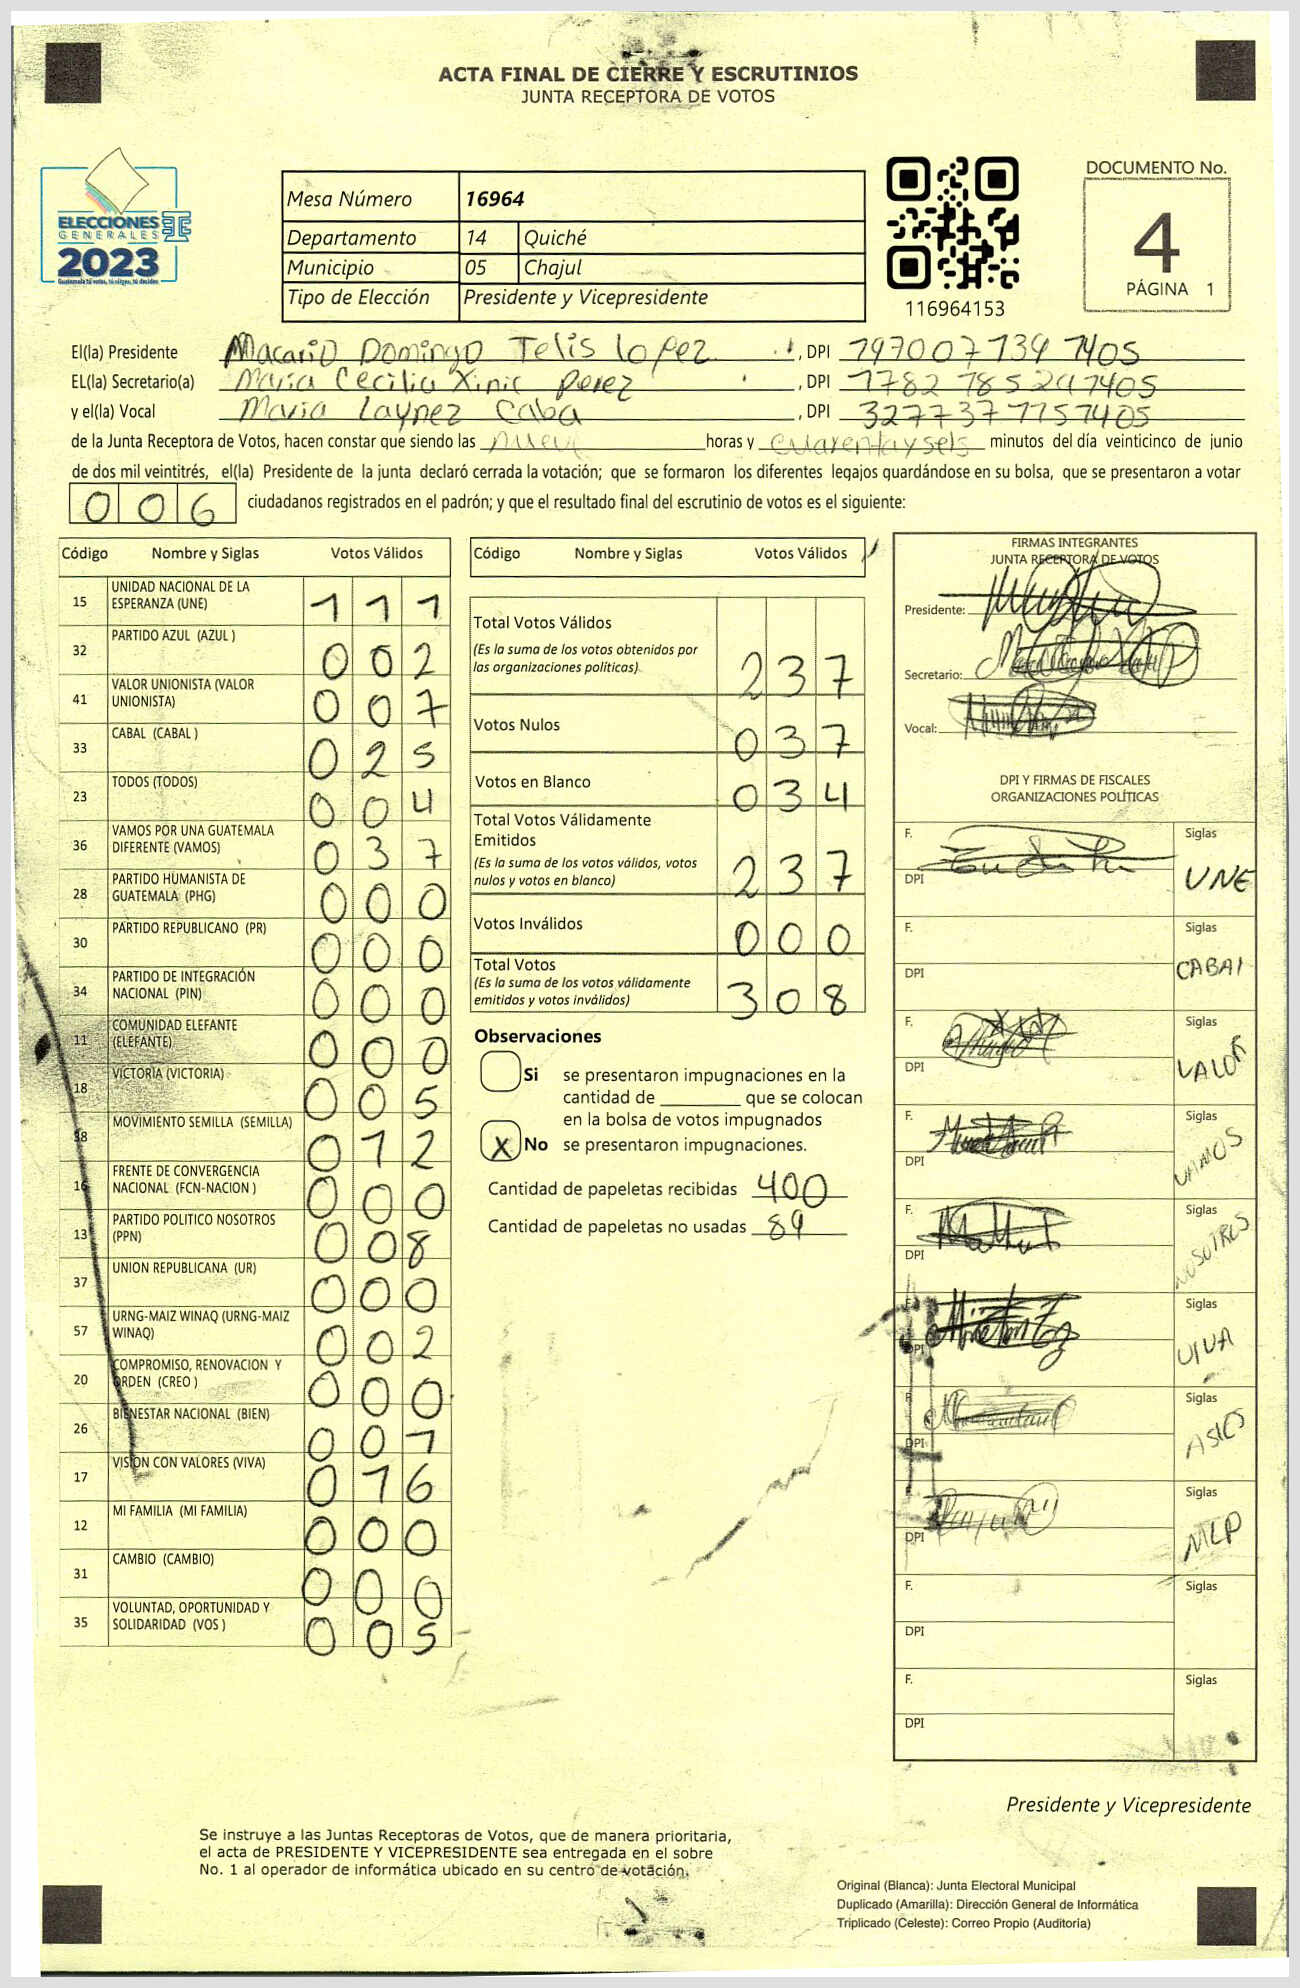 ACTA FINAL DE CIERRE Y ESCRUTINIOS
JUNTA RECEPTORA DE VOTOS
ELECCIONES
GENERALES
2023
Guatemala tú votas, tú eliges, tú decides
Mesa Número 16964
Departamento 14 Quiché
Municipio 05 Chajul
Tipo de Elección Presidente y Vicepresidente
116964153
DOCUMENTO No.
4
PÁGINA 1
El(la) Presidente Macario Domingo Telis Lopez, DPI
EL(la) Secretario(a) Maria Cecilia Xinic Perez, DPI
y el(la) Vocal Maria Laynez Caba, DPI
de la Junta Receptora de Votos, hacen constar que siendo las nueve horas y cuarentayseis minutos del día veinticinco de junio
de dos mil veintitrés, el(la) Presidente de la junta declaró cerrada la votación; que se formaron los diferentes legajos guardándose en su bolsa, que se presentaron a votar
006 ciudadanos registrados en el padrón; y que el resultado final del escrutinio de votos es el siguiente:
Código Nombre y Siglas Votos Válidos
15 UNIDAD NACIONAL DE LA
ESPERANZA (UNE) 111
32 PARTIDO AZUL (AZUL ) 002
41 VALOR UNIONISTA (VALOR
UNIONISTA) 007
33 CABAL (CABAL ) 025
23 TODOS (TODOS) 004
36 VAMOS POR UNA GUATEMALA
DIFERENTE (VAMOS) 037
28 PARTIDO HUMANISTA DE
GUATEMALA (PHG) 000
30 PARTIDO REPUBLICANO (PR) 000
34 PARTIDO DE INTEGRACIÓN
NACIONAL (PIN) 000
11 COMUNIDAD ELEFANTE
(ELEFANTE) 000
18 VICTORIA (VICTORIA) 005
38 MOVIMIENTO SEMILLA (SEMILLA) 012
16 FRENTE DE CONVERGENCIA
NACIONAL (FCN-NACION ) 000
13 PARTIDO POLITICO NOSOTROS
(PPN) 008
37 UNION REPUBLICANA (UR) 000
57 URNG-MAIZ WINAQ (URNG-MAIZ
WINAQ) 002
20 COMPROMISO, RENOVACION Y
ORDEN (CREO ) 000
26 BIENESTAR NACIONAL (BIEN) 001
17 VISION CON VALORES (VIVA) 016
12 MI FAMILIA (MI FAMILIA) 000
31 CAMBIO (CAMBIO) 000
35 VOLUNTAD, OPORTUNIDAD Y
SOLIDARIDAD (VOS ) 005
Código Nombre y Siglas Votos Válidos
Total Votos Válidos
(Es la suma de los votos obtenidos por
las organizaciones políticas) 237
Votos Nulos 037
Votos en Blanco 034
Total Votos Válidamente
Emitidos
(Es la suma de los votos válidos, votos
nulos y votos en blanco) 237
Votos Inválidos 000
Total Votos
(Es la suma de los votos válidamente
emitidos y votos inválidos) 308
Observaciones
Si se presentaron impugnaciones en la
cantidad de ________ que se colocan
en la bolsa de votos impugnados
X No se presentaron impugnaciones.
Cantidad de papeletas recibidas 400
Cantidad de papeletas no usadas 89
FIRMAS INTEGRANTES
JUNTA RECEPTORA DE VOTOS
Presidente:
Secretario:
Vocal:
DPI Y FIRMAS DE FISCALES
ORGANIZACIONES POLÍTICAS
F. Siglas
DPI UNE
F. Siglas
DPI CABAl
F. Siglas
DPI VALOR
F. Siglas
DPI VAMOS
F. Siglas
DPI NOSOTROS
F. Siglas
DPI VIVA
F. Siglas
DPI
F. Siglas
DPI MLP
F. Siglas
DPI
F. Siglas
DPI
Presidente y Vicepresidente
Se instruye a las Juntas Receptoras de Votos, que de manera prioritaria,
el acta de PRESIDENTE Y VICEPRESIDENTE sea entregada en el sobre
No. 1 al operador de informática ubicado en su centro de votación.
Original (Blanca): Junta Electoral Municipal
Duplicado (Amarilla): Dirección General de Informática
Triplicado (Celeste): Correo Propio (Auditoria)